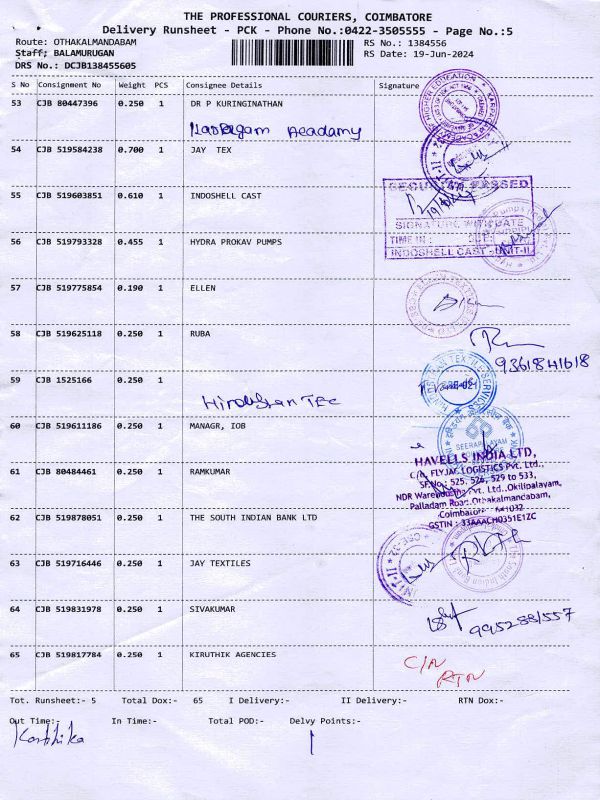 THE PROFESSIONAL COURIERS, COIMBATORE
Delivery Runsheet - PCK - Phone No.:0422-3505555 - Page No.:5
Route: OTHAKALMANDABAM
RS No.: 1384556
Staff: BALAMURUGAN
RS Date: 19-Jun-2024
DRS No.: DCJB138455605
S No Consignment No Weight PCS Consignee Details Signature
53 CJB 80447396 0.250 1 DR P KURINGINATHAN
54 CJB 519584238 0.700 1 JAY TEX
SECURITY PASSED
55 CJB 519603851 0.610 1 INDOSHELL CAST
SIGNATURE WITH DATE
TIME IN : OUT:
56 CJB 519793328 0.455 1 HYDRA PROKAV PUMPS
INDOSHELL CAST - UNIT-II
57 CJB 519775854 0.190 1 ELLEN
58 CJB 519625118 0.250 1 RUBA
9361841618
59 CJB 1525166 0.250 1
60 CJB 519611186 0.250 1 MANAGR, IOB
SEERAPALAYAM
HAVELLS INDIA LTD,
C/o, FLYJAC LOGISTICS Pvt. Ltd.,
61 CJB 80484461 0.250 1 RAMKUMAR
SF.No: 525, 526, 529 to 533,
NDR Warehousing Pvt. Ltd., Okilipalayam,
Palladam Road, Othakalmandabam,
Coimbatore - 641032
62 CJB 519878051 0.250 1 THE SOUTH INDIAN BANK LTD
GSTIN : 33AAACH0351E1ZC
63 CJB 519716446 0.250 1 JAY TEXTILES
64 CJB 519831978 0.250 1 SIVAKUMAR
9952881557
65 CJB 519817784 0.250 1 KIRUTHIK AGENCIES
C/N
RTN
Tot. Runsheet:- 5 Total Dox:- 65 I Delivery:- II Delivery:- RTN Dox:-
Out Time:- In Time:- Total POD:- Delvy Points:-
Karthika